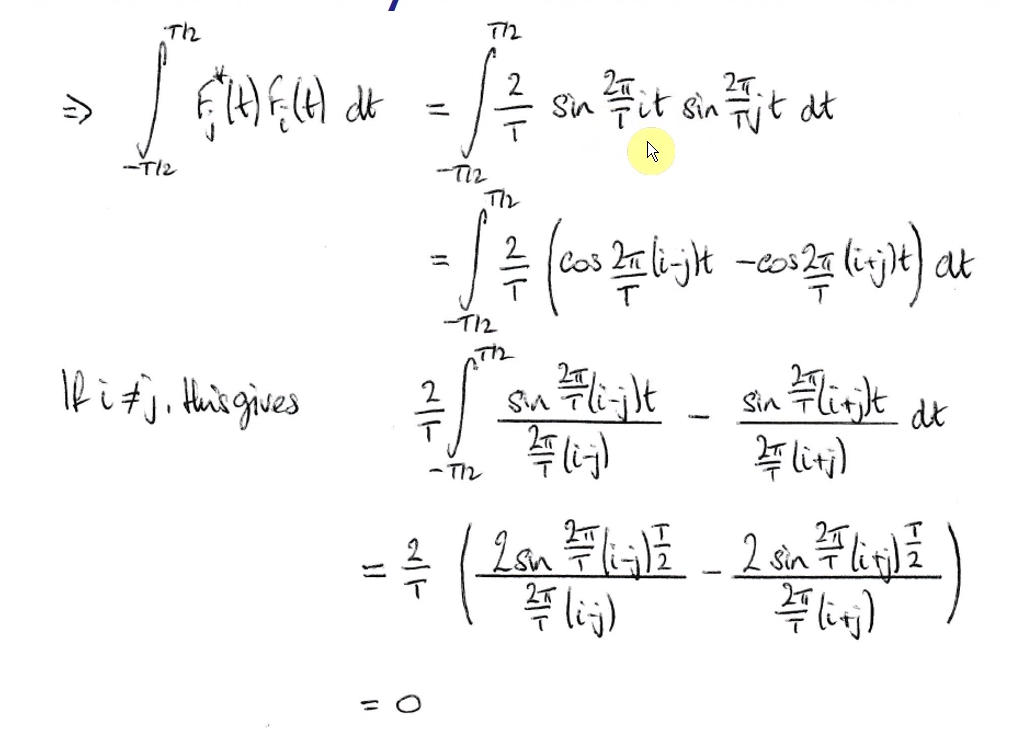 ⇒ ∫_{-T/2}^{T/2} F_j^*(t) F_i(t) dt = ∫_{-T/2}^{T/2} 2/T sin 2π/T it sin 2π/T jt dt
= ∫_{-T/2}^{T/2} 2/T (cos 2π/T (i-j)t - cos 2π/T (i+j)t) dt
If i ≠ j, this gives 2/T ∫_{-T/2}^{T/2} sin 2π/T (i-j)t / 2π/T (i-j) - sin 2π/T (i+j)t / 2π/T (i+j) dt
= 2/T ( 2 sin 2π/T (i-j) T/2 / 2π/T (i-j) - 2 sin 2π/T (i+j) T/2 / 2π/T (i+j) )
= 0